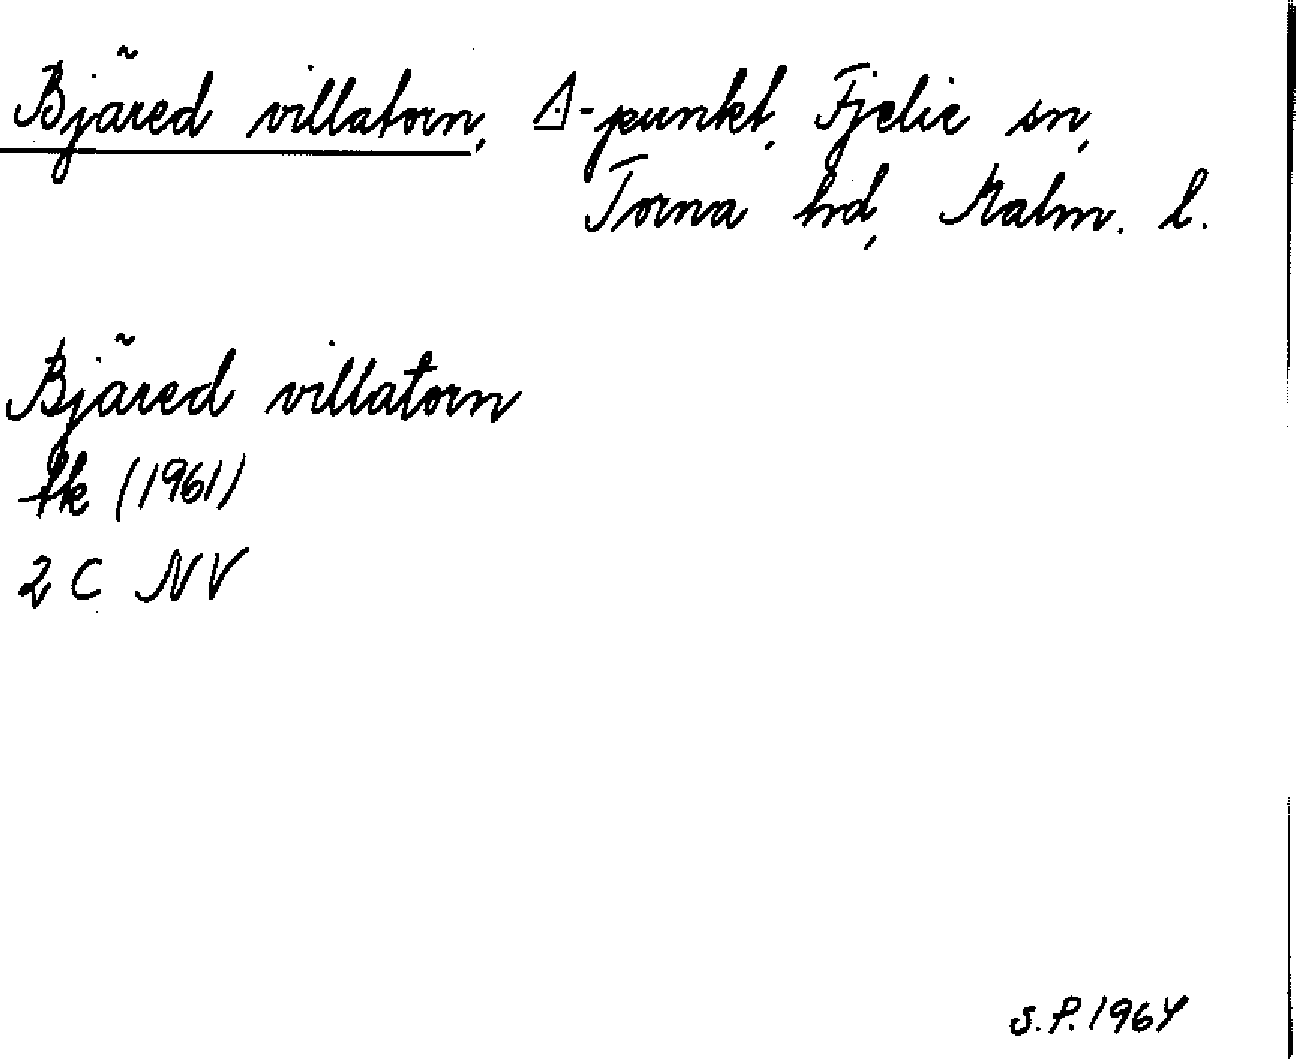 Bjäred villatorn, △-punkt, Fjelie sn,
Torna hd, Malm. l.
Bjäred villatorn
fk (1961)
2 C NV
S.P. 1964